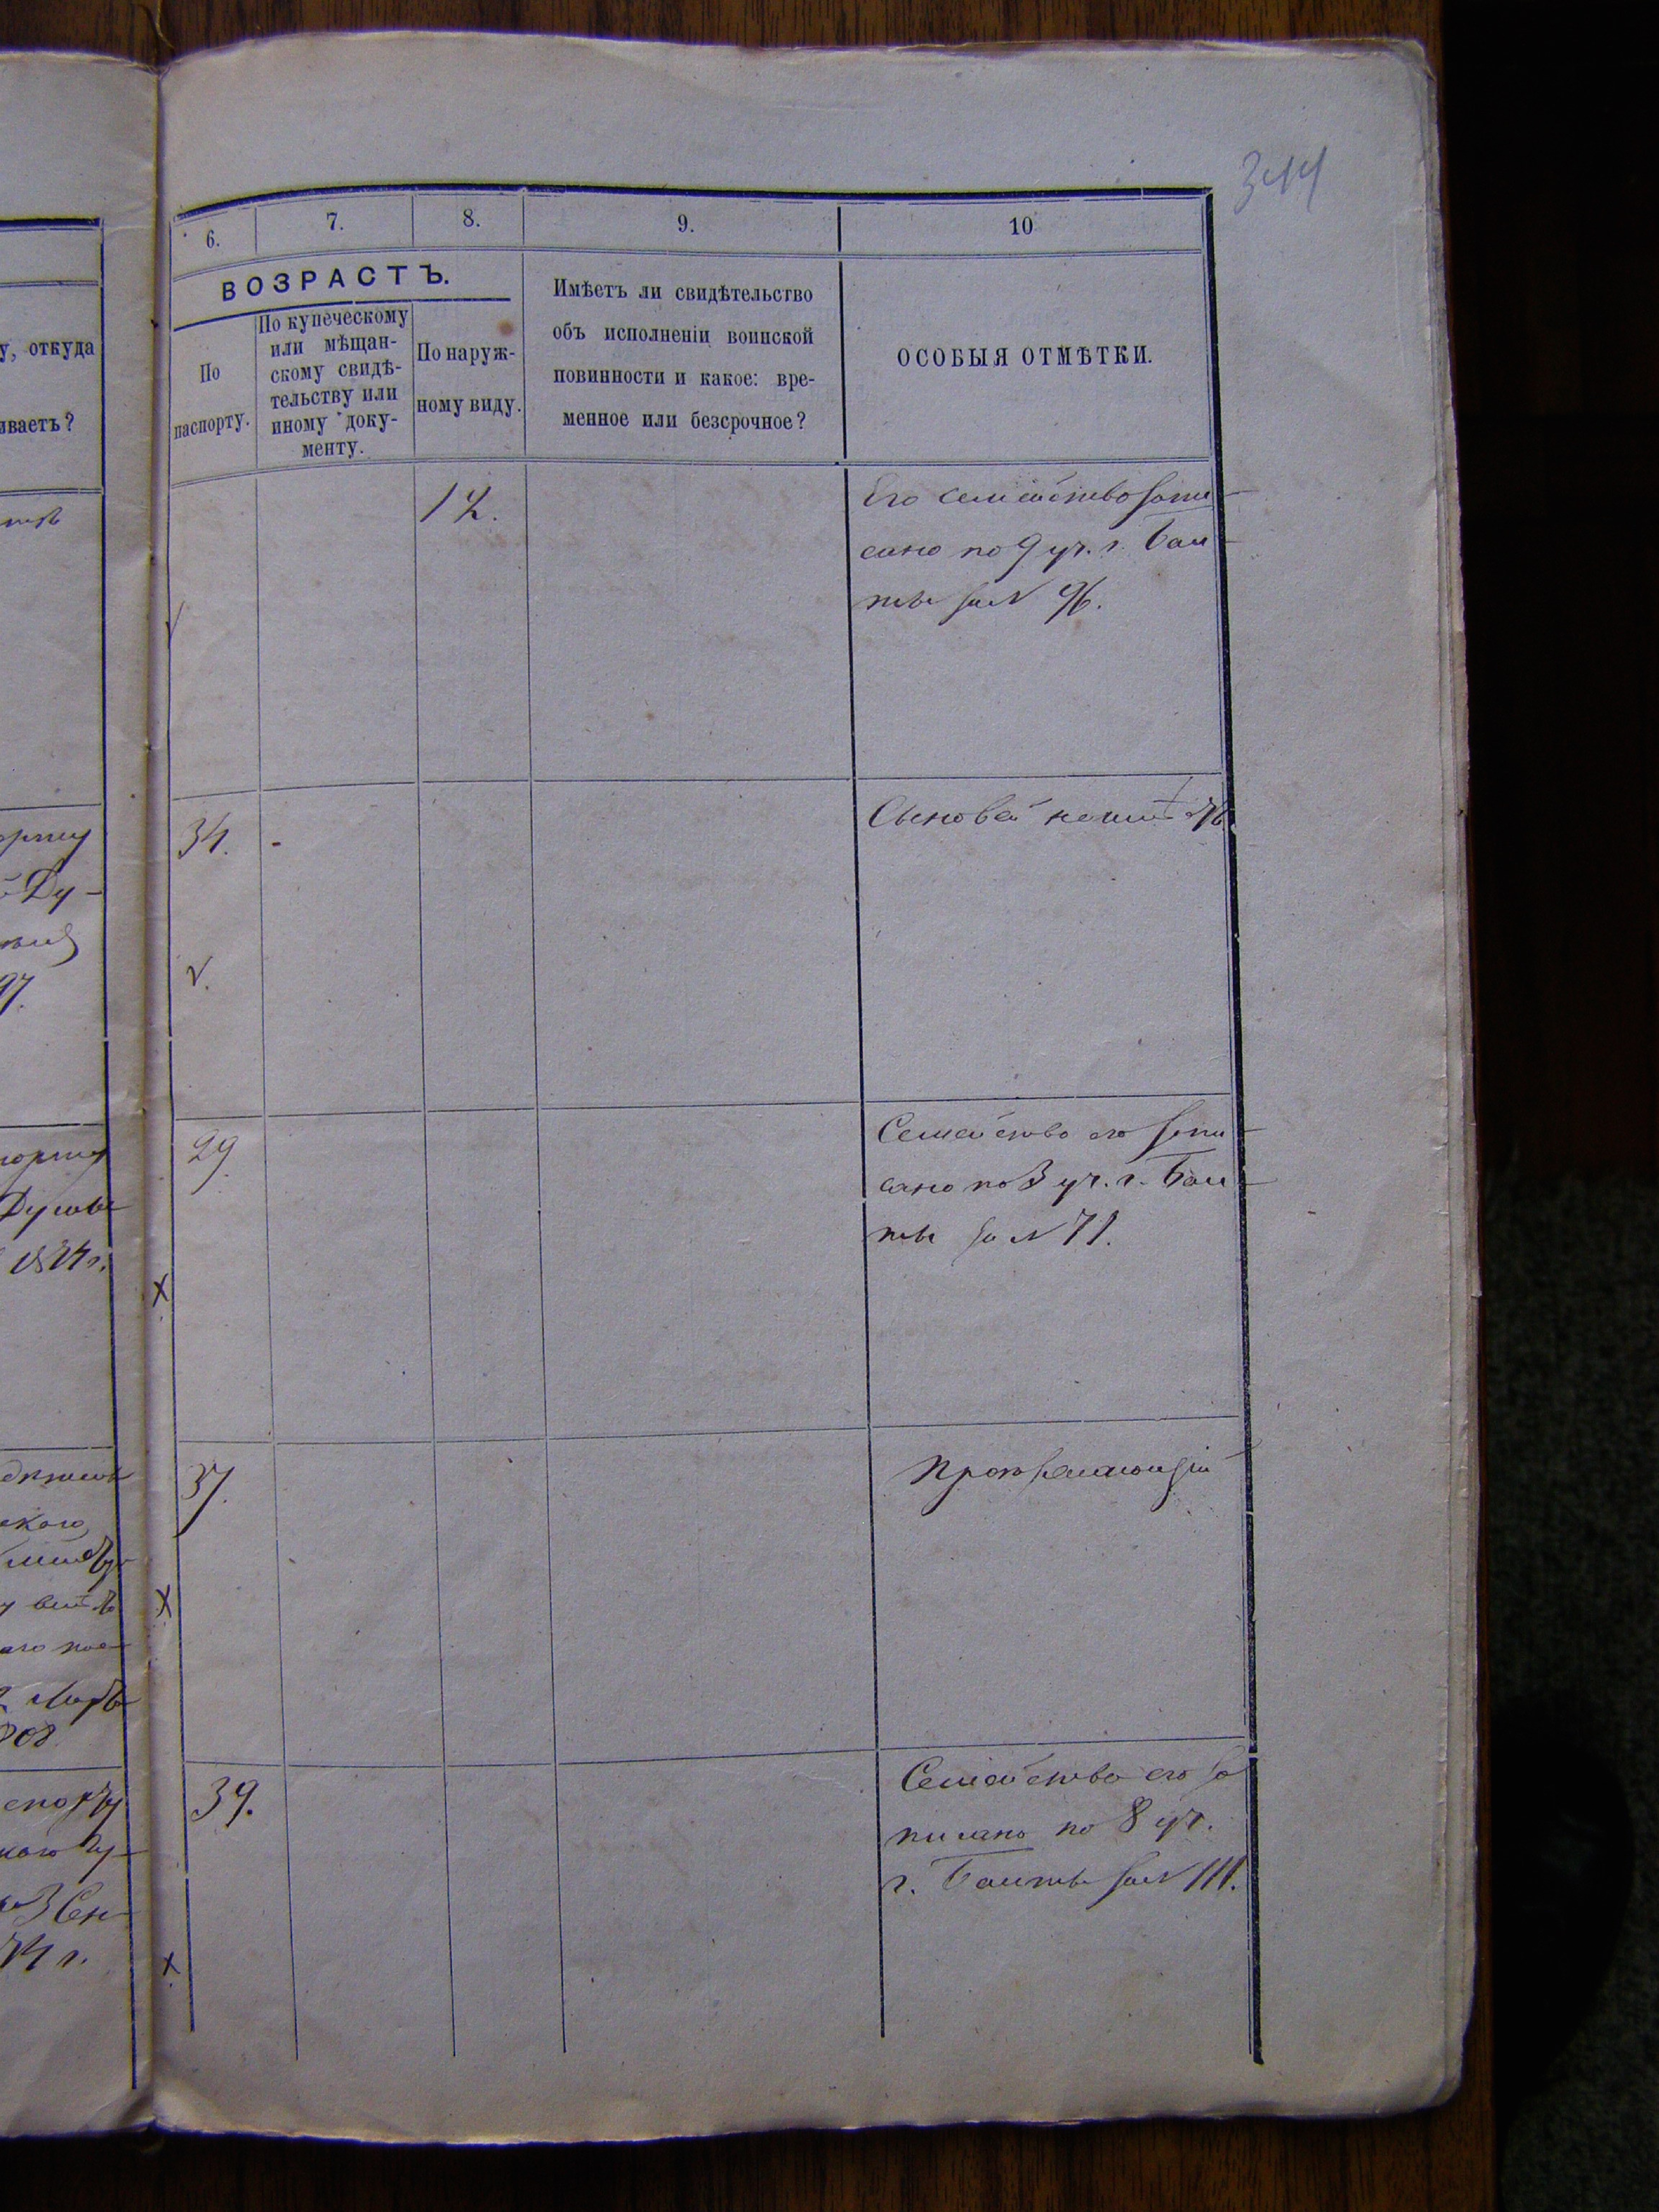 344
6.
7.
8.
9.
10
ВОЗРАСТЪ.
По
паспорту.
По купеческому
или мѣщан-
скому свидѣ-
тельству или
иному доку-
менту.
По наруж-
ному виду.
Имѣетъ ли свидѣтельство
объ исполненіи воинской
повинности и какое: вре-
менное или безсрочное?
ОСОБЫЯ ОТМѢТКИ.
у, откуда
иваетъ?
12.
Его семейство запи-
сано по 9 уч. г. Бал-
ты за № 96.
34.
Сыновей неимѣетъ
29
Семейство его запи-
сано по 3 уч. г. Бал-
ты за № 71.
37.
39.
Семейство его за
писано по 8 уч.
г. Балты за № 111.
Ду-
97.
Дубов
1874 г.
ского
308
3 Сен
74 г.